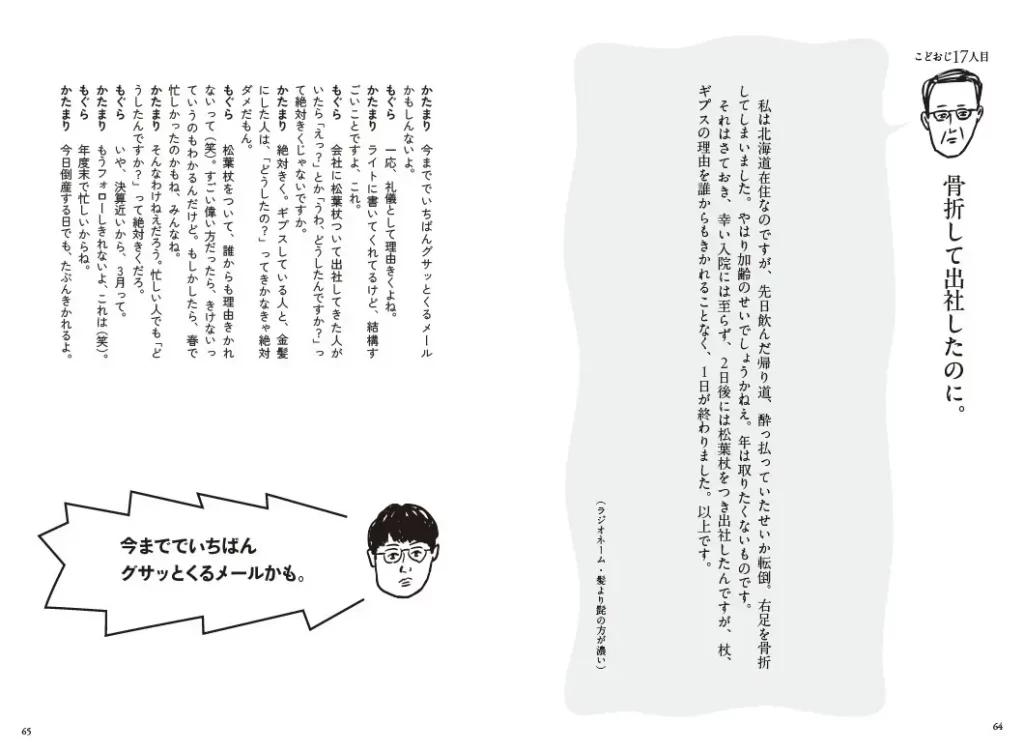 こどおじ17人目
骨折して出社したのに。
私は北海道在住なのですが、先日飲んだ帰り道、酔っ払っていたせいか転倒。右足を骨折
してしまいました。やはり加齢のせいでしょうかねえ。年は取りたくないものです。
それはさておき、幸い入院には至らず、2日後には松葉杖をつき出社したんですが、杖、
ギプスの理由を誰からもきかれることなく、1日が終わりました。以上です。
(ラジオネーム・髪より髭の方が濃い)
64
かたまり 今まででいちばんグサッとくるメール
かもしんないよ。
もぐら 一応、礼儀として理由きくよね。
かたまり ライトに書いてくれてるけど、結構す
ごいことですよ、これ。
もぐら 会社に松葉杖ついて出社してきた人が
いたら「えっ?」とか「うわ、どうしたんですか?」っ
て絶対きくじゃないですか。
かたまり 絶対きく。ギプスしている人と、金髪
にした人は、「どうしたの?」ってきかなきゃ絶対
ダメだもん。
もぐら 松葉杖をついて、誰からも理由きかれ
ないって(笑)。すごい偉い方だったら、きけないっ
ていうのもわかるんだけど。もしかしたら、春で
忙しかったのかもね、みんなね。
かたまり そんなわけねえだろう。忙しい人でも「ど
うしたんですか?」って絶対きくだろ。
もぐら いや、決算近いから、3月って。
かたまり もうフォローしきれないよ、これは(笑)。
もぐら 年度末で忙しいからね。
かたまり 今日倒産する日でも、たぶんきかれるよ。
今まででいちばん
グサッとくるメールかも。
65